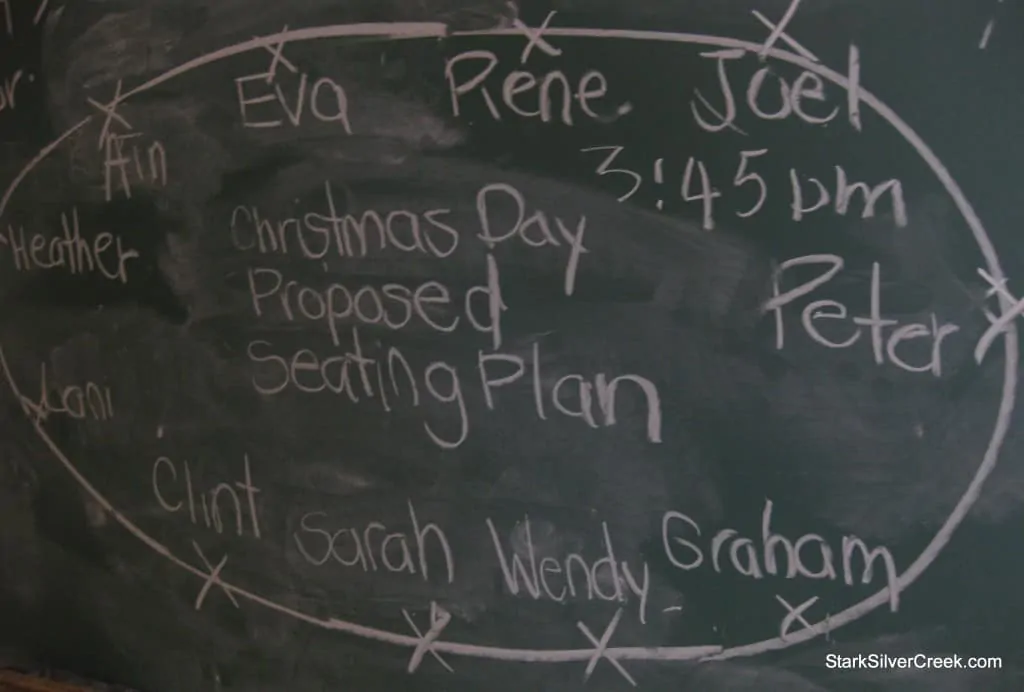 Eva Rene Joel
Ain
3:45 pm
Heather
Christmas Day
Proposed
Seating Plan
Peter
Loni
Clint
Sarah Wendy Graham
StarkSilverCreek.com